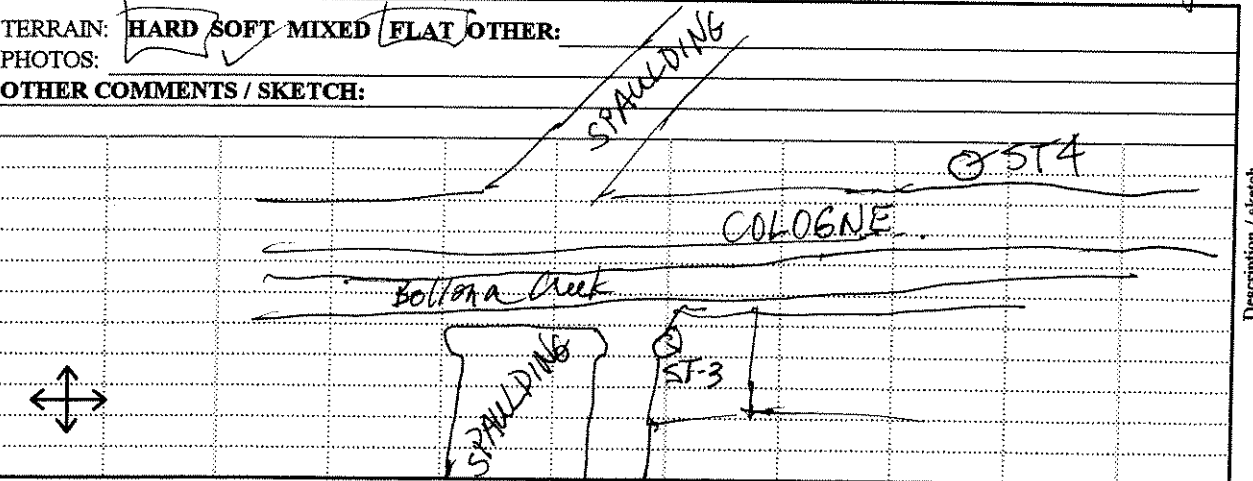 TERRAIN: HARD SOFT MIXED FLAT OTHER:
PHOTOS:
OTHER COMMENTS / SKETCH:
SPAULDING
ST4
COLOGNE
Ballona Creek
ST-3
SPAULDING
Description / sketch